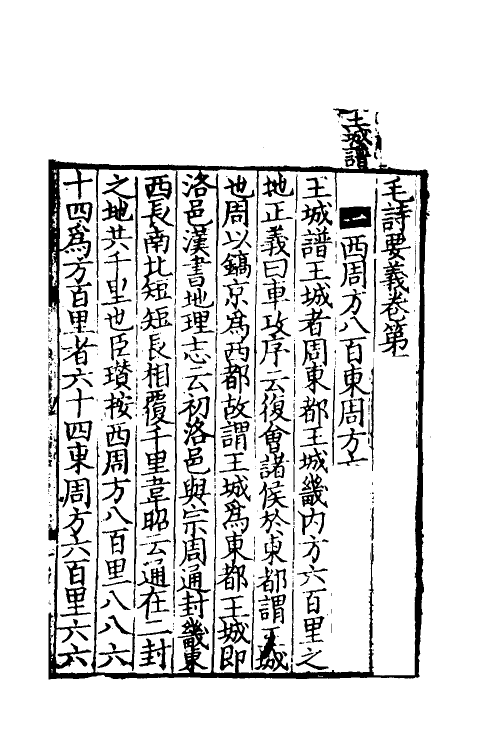 王城譜
毛詩要義卷第
一西周方八百東周方六
王城譜王城者周東都王城畿内方六百里之
地正義曰車攻序云復會諸侯於東都謂王城
也周以鎬京為西都故謂王城為東都王城即
洛邑漢書地理志云初洛邑與宗周通封畿東
西長南北短短長相覆千里韋昭云通在二封
之地共千里也臣瓉按西周方八百里八八六
十四為方百里者六十四東周方六百里六六